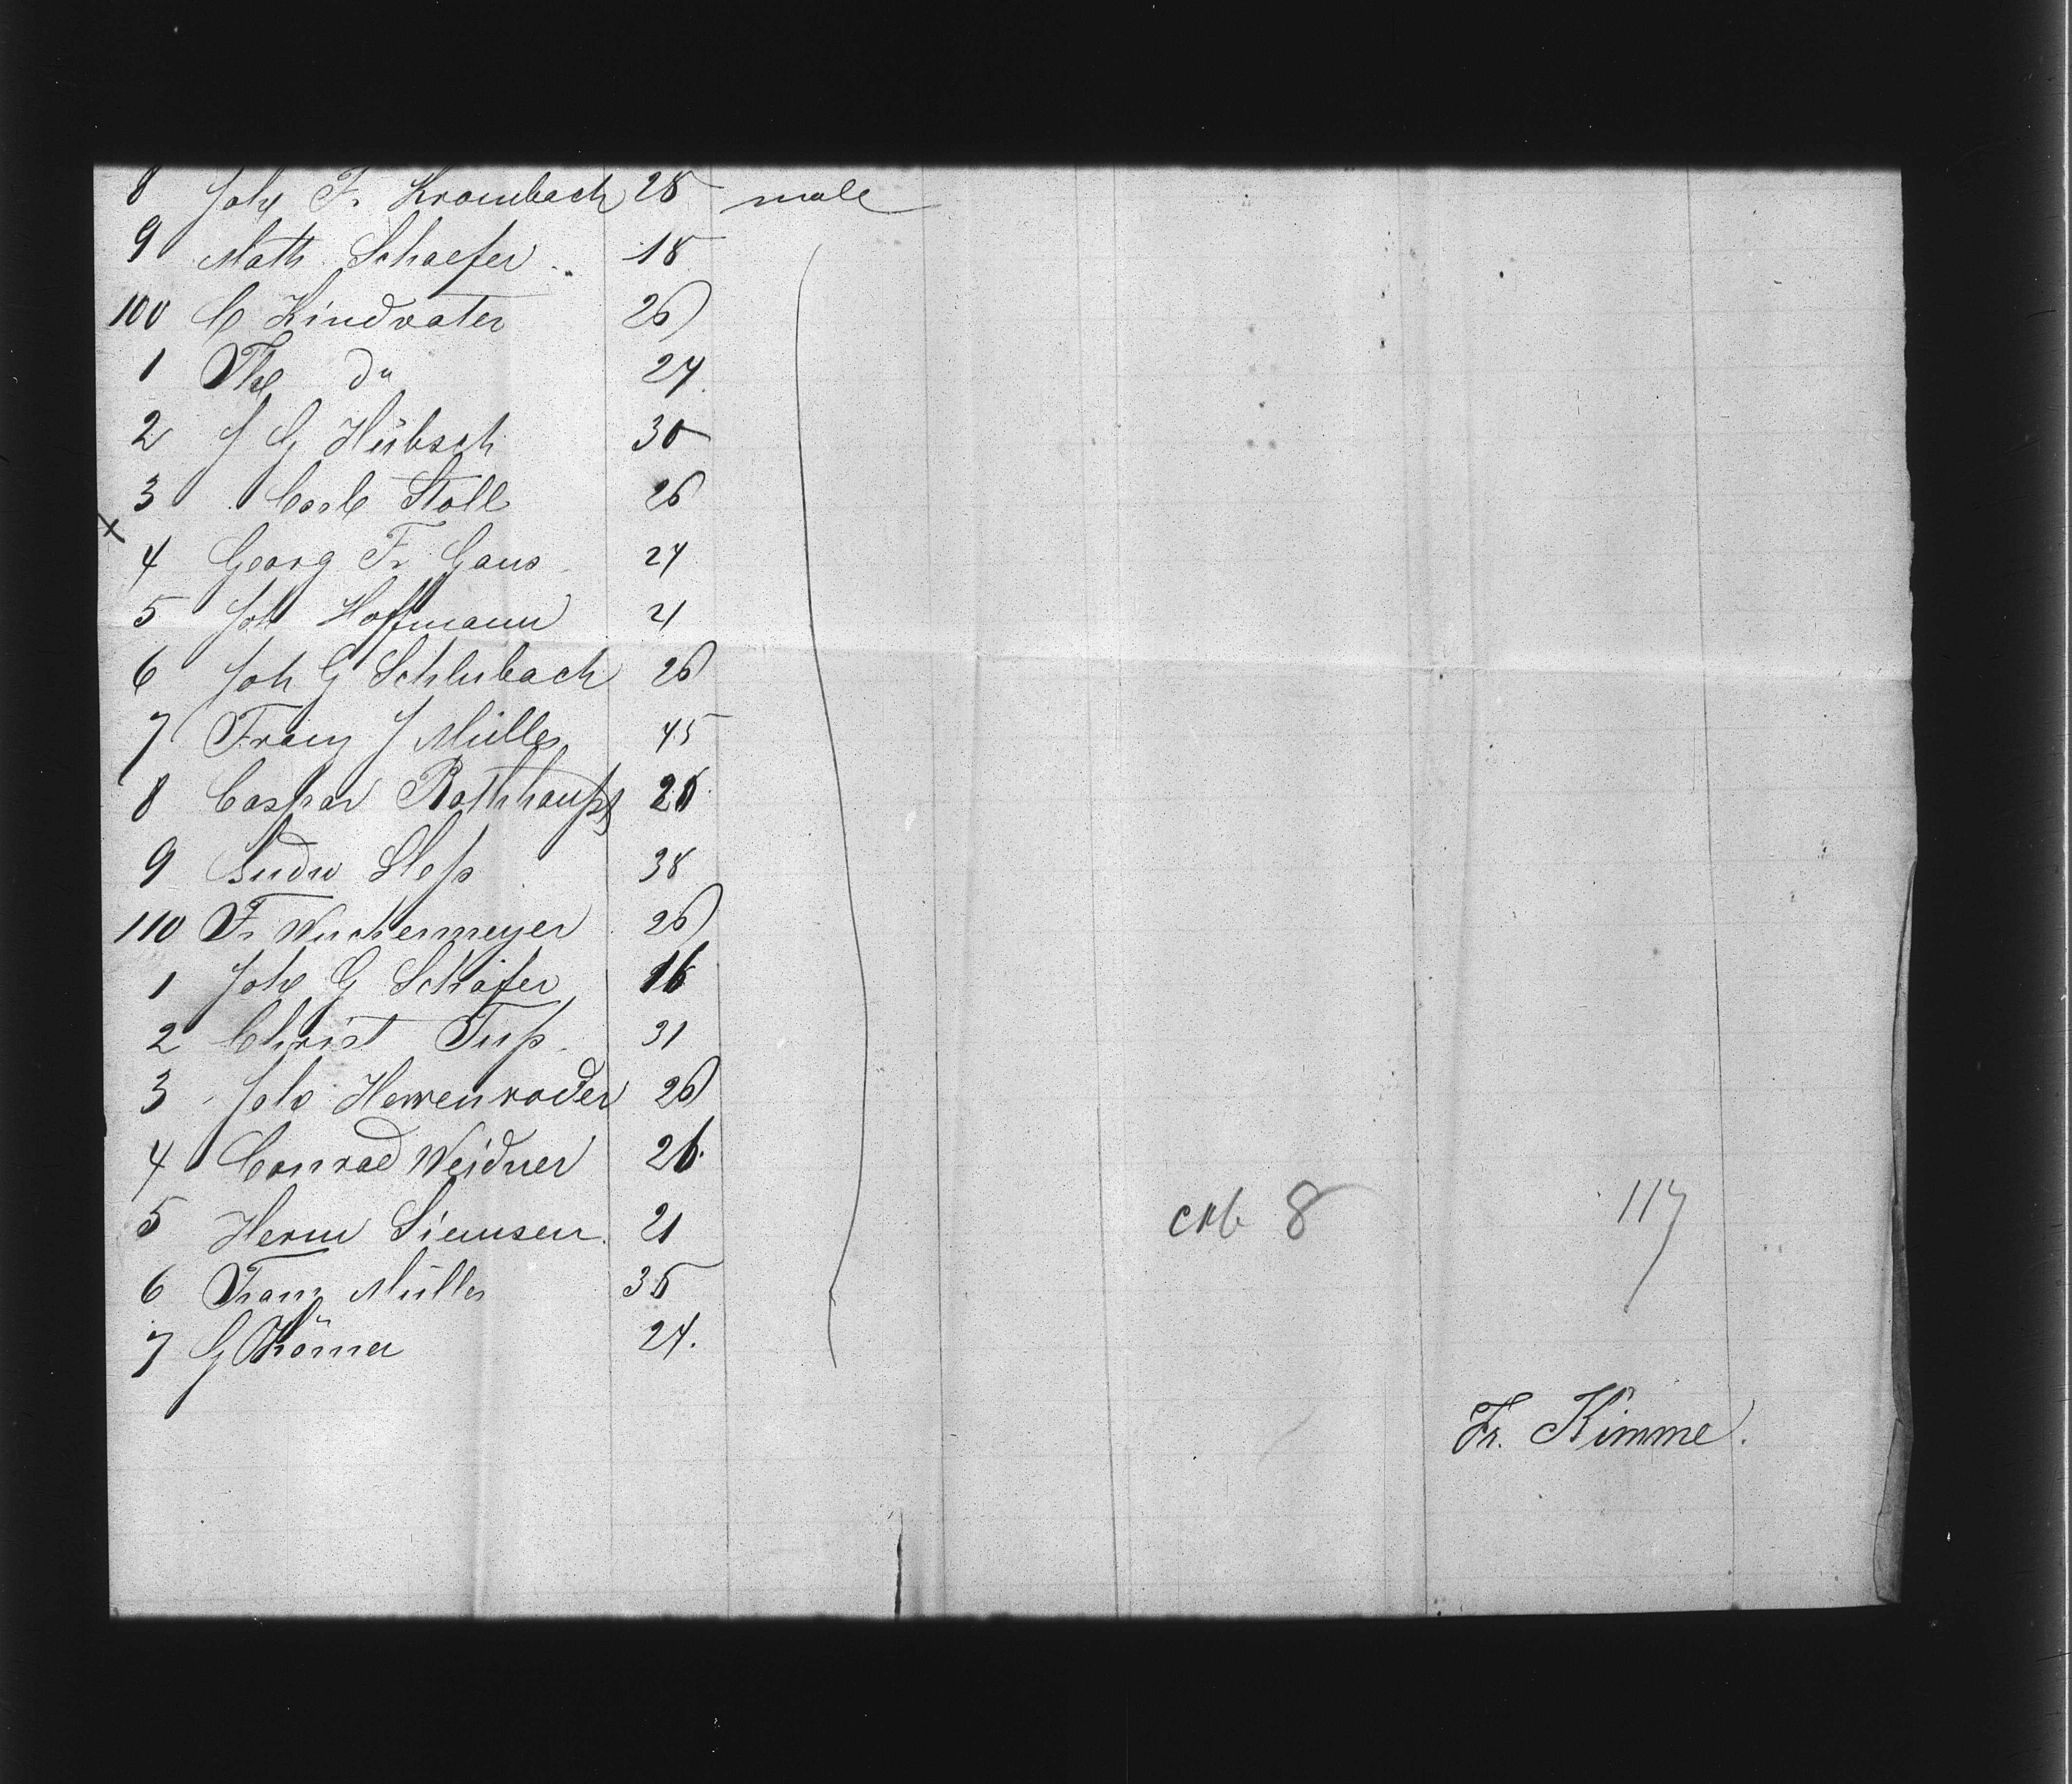 8 Joh F. Krombach 28 male
9 Math. Schaefer 18
100 C Kindvater 26
1 Th do 27
2 J G Hübsch 30
3 Carl Stoll 26
x
4 Georg Fr Gans 24
5 Joh Hoffmann 21
6 Joh G Schlubach 26
7 Franz J Müller 45
8 Caspar Rothhaupt 28
9 Ludw Hess 38
110 Fr Wuchermeyer 26
1 Joh G Schäfer 16
2 Christ Tuß 31
3 Joh Herrenroder 26
4 Conrad Weidner 26
5 Herm Siemsen 21
6 Franz Müller 35
7 G Körner 24.
8 117
Fr. Kimme.